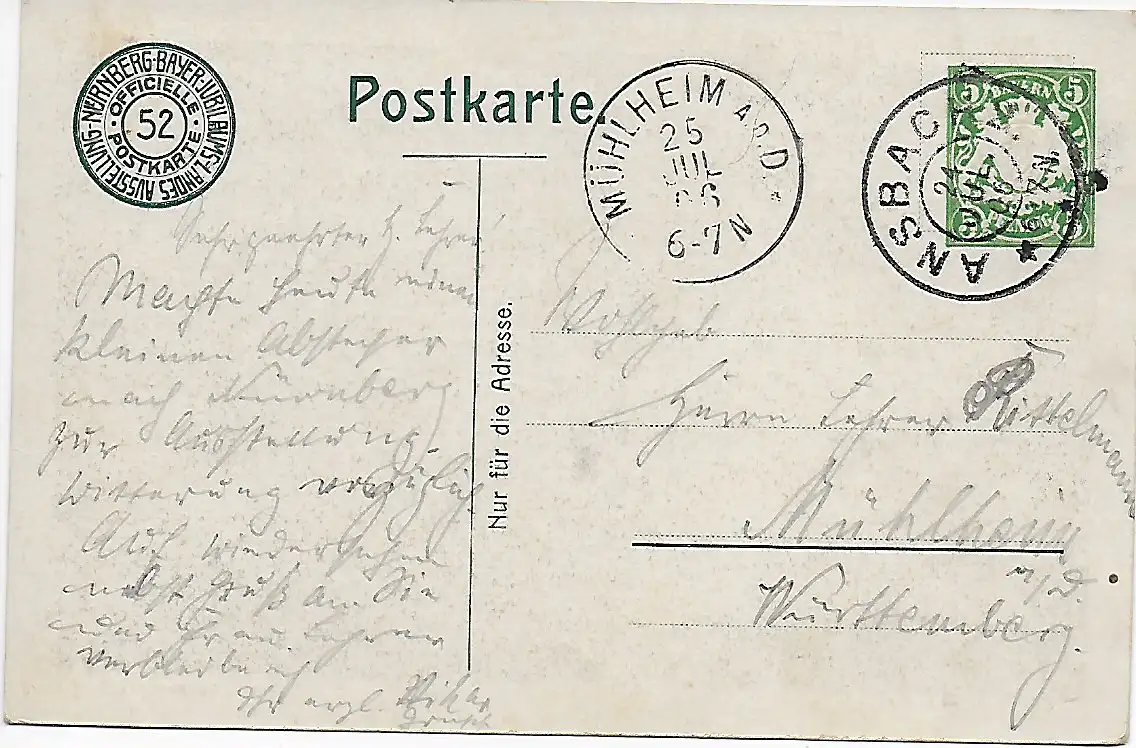 NÜRNBERG-BAYER-JUBILÄUMS-LANDES AUSSTELLUNG-
OFFICIELLE
52
POSTKARTE
Postkarte.
MÜHLHEIM A.D.
25
JUL
06
6-7N
BAYERN
5 5
ANSBACH
JUL
Sehr geehrter H. Lehrer!
Machte heute einen
kleinen Abstecher
nach Nürnberg
zur Ausstellung.
Witterung vorzüglich.
Auf Wiedersehen
nebst Gruß an Sie
und Frau Lehrer
verbleibe ich
Ihr ergl.
Nur für die Adresse.
Wohlgeb
Herrn Lehrer Rittelmann
Mühlheim
a/D.
Württemberg.